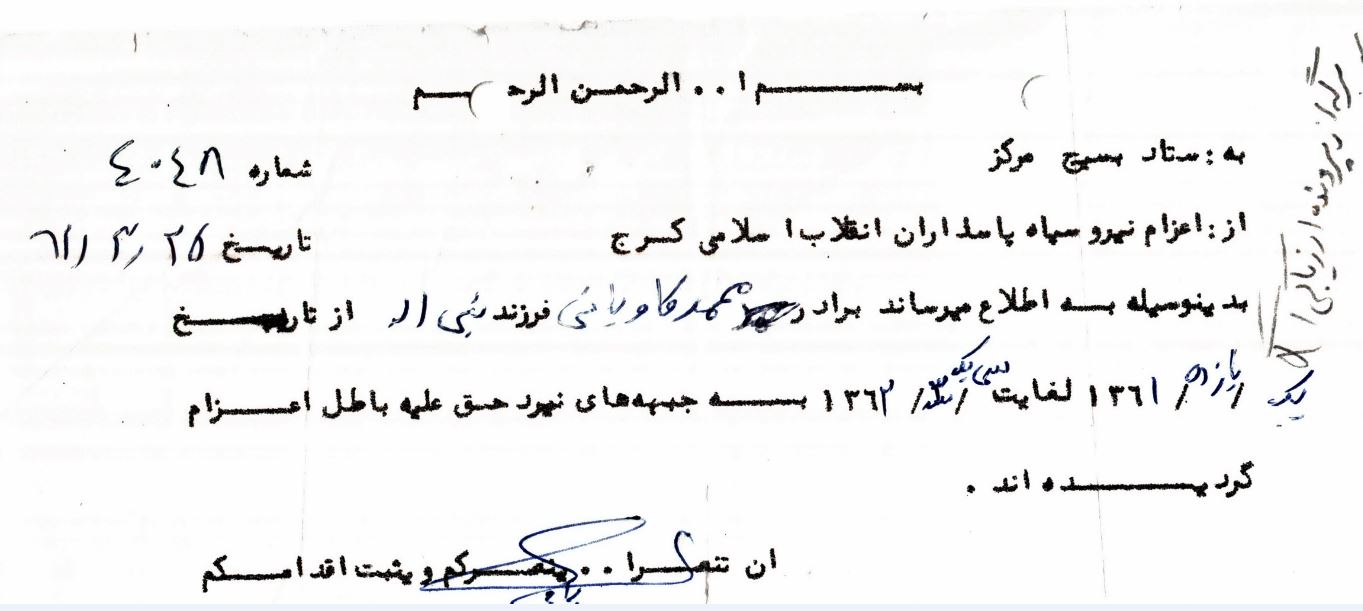 بسم ا.. الرحمن الرحیم
به : ستاد بسیج مرکز
شماره ٤٠٤٨
از : اعزام نیرو سپاه پاسداران انقلاب اسلامی کرج
تاریخ
بدینوسیله به اطلاع میرساند برادر محمد کاویانی فرزند نبی اله از تاریخ
یک / یازده / ۱۳٦۱ لغایت سی یک / / ۱۳٦۲ به جبهه‌های نبرد حق علیه باطل اعزام
گردیده اند .
ان تنصرا .. ینصرکم و یثبت اقدامکم
پرونده ارزیابی